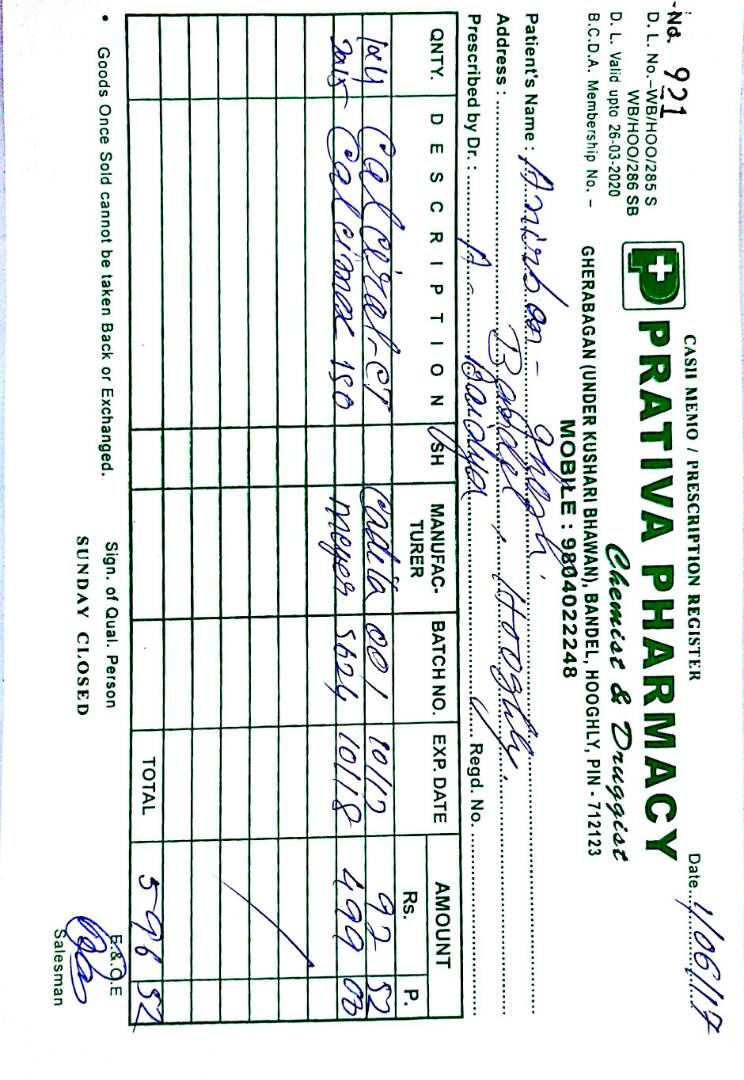 CASH MEMO / PRESCRIPTION REGISTER
No. 921
Date 1/06/17
D. L. No.–WB/HOO/285 S
WB/HOO/286 SB
D. L. Valid upto 26-03-2020
B.C.D.A. Membership No. –
PRATIVA PHARMACY
Chemist & Druggist
GHERABAGAN (UNDER KUSHARI BHAWAN), BANDEL, HOOGHLY, PIN - 712123
MOBILE : 9804022248
Patient's Name : Anirban Ghosh
Address : Bandel, Hooghly.
Prescribed by Dr. : A. Baidya Regd. No.
QNTY. DESCRIPTION SH MANUFAC-TURER BATCH NO. EXP. DATE AMOUNT Rs. P.
1x4 Calcirol-CT Cadila 001 10/17 97 52
2x15 Calcimax 150 Meyer 10/18 499 00
TOTAL 596 52
• Goods Once Sold cannot be taken Back or Exchanged.
Sign. of Qual. Person
E.&.O.E
SUNDAY CLOSED
Salesman